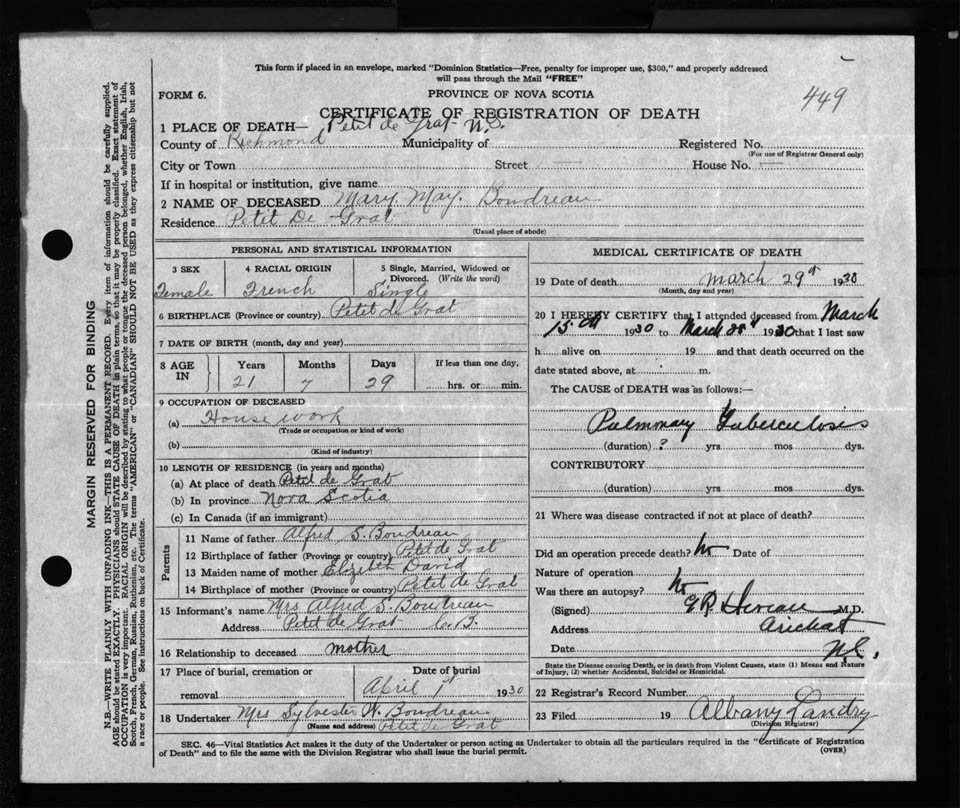 This form if placed in an envelope, marked "Dominion Statistics—Free, penalty for improper use, $300," and properly addressed
will pass through the Mail "FREE"
FORM 6. PROVINCE OF NOVA SCOTIA
449
CERTIFICATE OF REGISTRATION OF DEATH
1 PLACE OF DEATH— Petit de Grat N.S.
County of Richmond Municipality of Registered No.
(For use of Registrar General only)
City or Town Street — House No. —
If in hospital or institution, give name
2 NAME OF DECEASED Mary May. Boudreau
Residence Petit De Grat
(Usual place of abode)
PERSONAL AND STATISTICAL INFORMATION
3 SEX 4 RACIAL ORIGIN 5 Single, Married, Widowed or
Divorced. (Write the word)
Female French Single
6 BIRTHPLACE (Province or country) Petit de Grat
7 DATE OF BIRTH (month, day and year)
8 AGE IN Years Months Days If less than one day,
21 7 29 hrs. or min.
9 OCCUPATION OF DECEASED
(a) House work
(Trade or occupation or kind of work)
(b)
(Kind of industry)
10 LENGTH OF RESIDENCE (in years and months)
(a) At place of death Petit de Grat
(b) In province Nova Scotia
(c) In Canada (if an immigrant)
Parents
11 Name of father Alfred S. Boudreau
12 Birthplace of father (Province or country) Petit de Grat
13 Maiden name of mother Elzibeth David
14 Birthplace of mother (Province or country) Petit de Grat
15 Informant's name Mrs Alfred S. Boudreau
Address Petit de Grat C.B.
16 Relationship to deceased mother
17 Place of burial, cremation or Date of burial
removal April 1st 1930
18 Undertaker Mrs Sylvester W. Boudreau
(Name and address) Petit de Grat
MEDICAL CERTIFICATE OF DEATH
19 Date of death March 29th 1930
(Month, day and year)
20 I HEREBY CERTIFY that I attended deceased from March
15th 1930 to March 28" 1930 that I last saw
h alive on 19 and that death occurred on the
date stated above, at m.
The CAUSE of DEATH was as follows:—
Pulmonary Tuberculosis
(duration) ? yrs mos dys.
CONTRIBUTORY
(duration) yrs mos dys.
21 Where was disease contracted if not at place of death?
Did an operation precede death? No Date of
Nature of operation
Was there an autopsy? No
(Signed) M.D.
Address Arichat
Date N.S.
State the Disease causing Death, or in death from Violent Causes, state (1) Means and Nature
of Injury, (2) whether Accidental, Suicidal or Homicidal.
22 Registrar's Record Number
23 Filed 19 Albany Landry
(Division Registrar)
SEC. 46—Vital Statistics Act makes it the duty of the Undertaker or person acting as Undertaker to obtain all the particulars required in the "Certificate of Registration
of Death" and to file the same with the Division Registrar who shall issue the burial permit. (OVER)
MARGIN RESERVED FOR BINDING
N.B.—WRITE PLAINLY WITH UNFADING INK—THIS IS A PERMANENT RECORD. Every item of information should be carefully supplied.
AGE should be stated EXACTLY. PHYSICIANS should STATE CAUSE OF DEATH in plain terms, so that it may be properly classified. Exact statement of
OCCUPATION is very important. RACIAL ORIGIN will be described by stating to what people or tongue the deceased person belonged, whether English, Irish,
Scotch, French, German, Russian, Ruthenian, etc. The terms "AMERICAN" or "CANADIAN" SHOULD NOT BE USED as they express citizenship but not
a race or people. See instructions on back of Certificate.